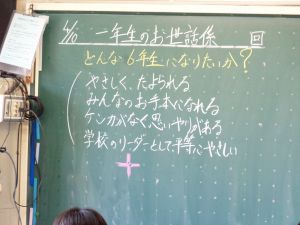 4/10 一年生のお世話係 回
どんな6年生になりたいか?
やさしく、たよられる
みんなのお手本になれる
ケンカがなく思いやりがある
学校のリーダーとして平等にやさしい
+